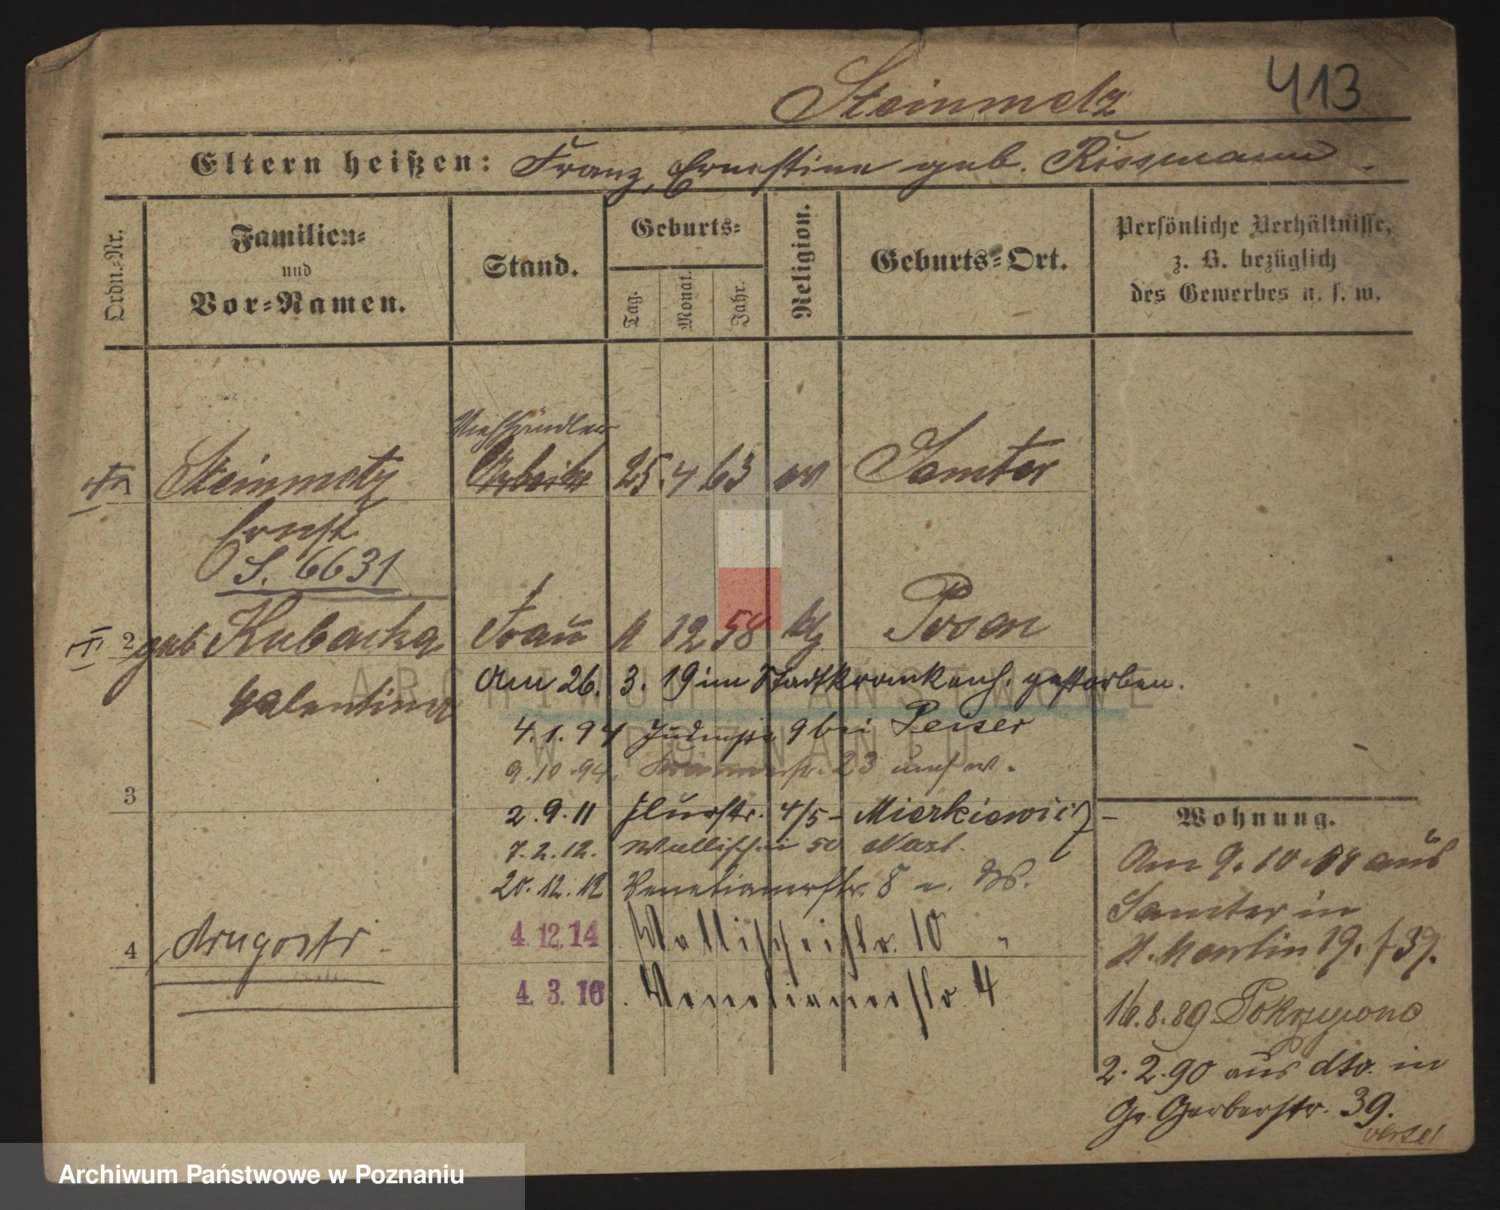 413
Steinmetz
Eltern heißen: Franz, Ernestine geb. Rissmann.
Ordn.-Nr.
Familien-
und
Vor-Namen.
Stand.
Geburts-
Tag.
Monat.
Jahr.
Religion.
Geburts-Ort.
Persönliche Verhältnisse,
z. B. bezüglich
des Gewerbes u. s. w.
Viehhändler
Steinmetz Arbeiter 25. 4 63 ev Samter
Ernst
S. 6631
2 geb Kubacka Frau 12 58 kth Posen
Valentina
Am 26. 3. 19 im Stadtkrankenh. gestorben.
4. 1. 94 9 bei Peiser
9. 10. 94. 23
3
2. 9. 11 Flurstr. 4/5 - Mierkiewicz -
7. 2. 12. Wallischei 50
20. 12. 12 Venetianerstr. 8
4. 12. 14 Wallischeistr. 10 "
4 drugostr.
4. 3. 16. Venetianerstr. 4
Wohnung.
Am 9. 10. 88 aus
Samter in
St. Martin 19. / 37.
16. 8. 89 Pokrzywno
2. 2. 90 aus dto. in
Gr. Gerberstr. 39.
verte!
ARCHIWUM PAŃSTWOWE
W POZNANIU
Archiwum Państwowe w Poznaniu